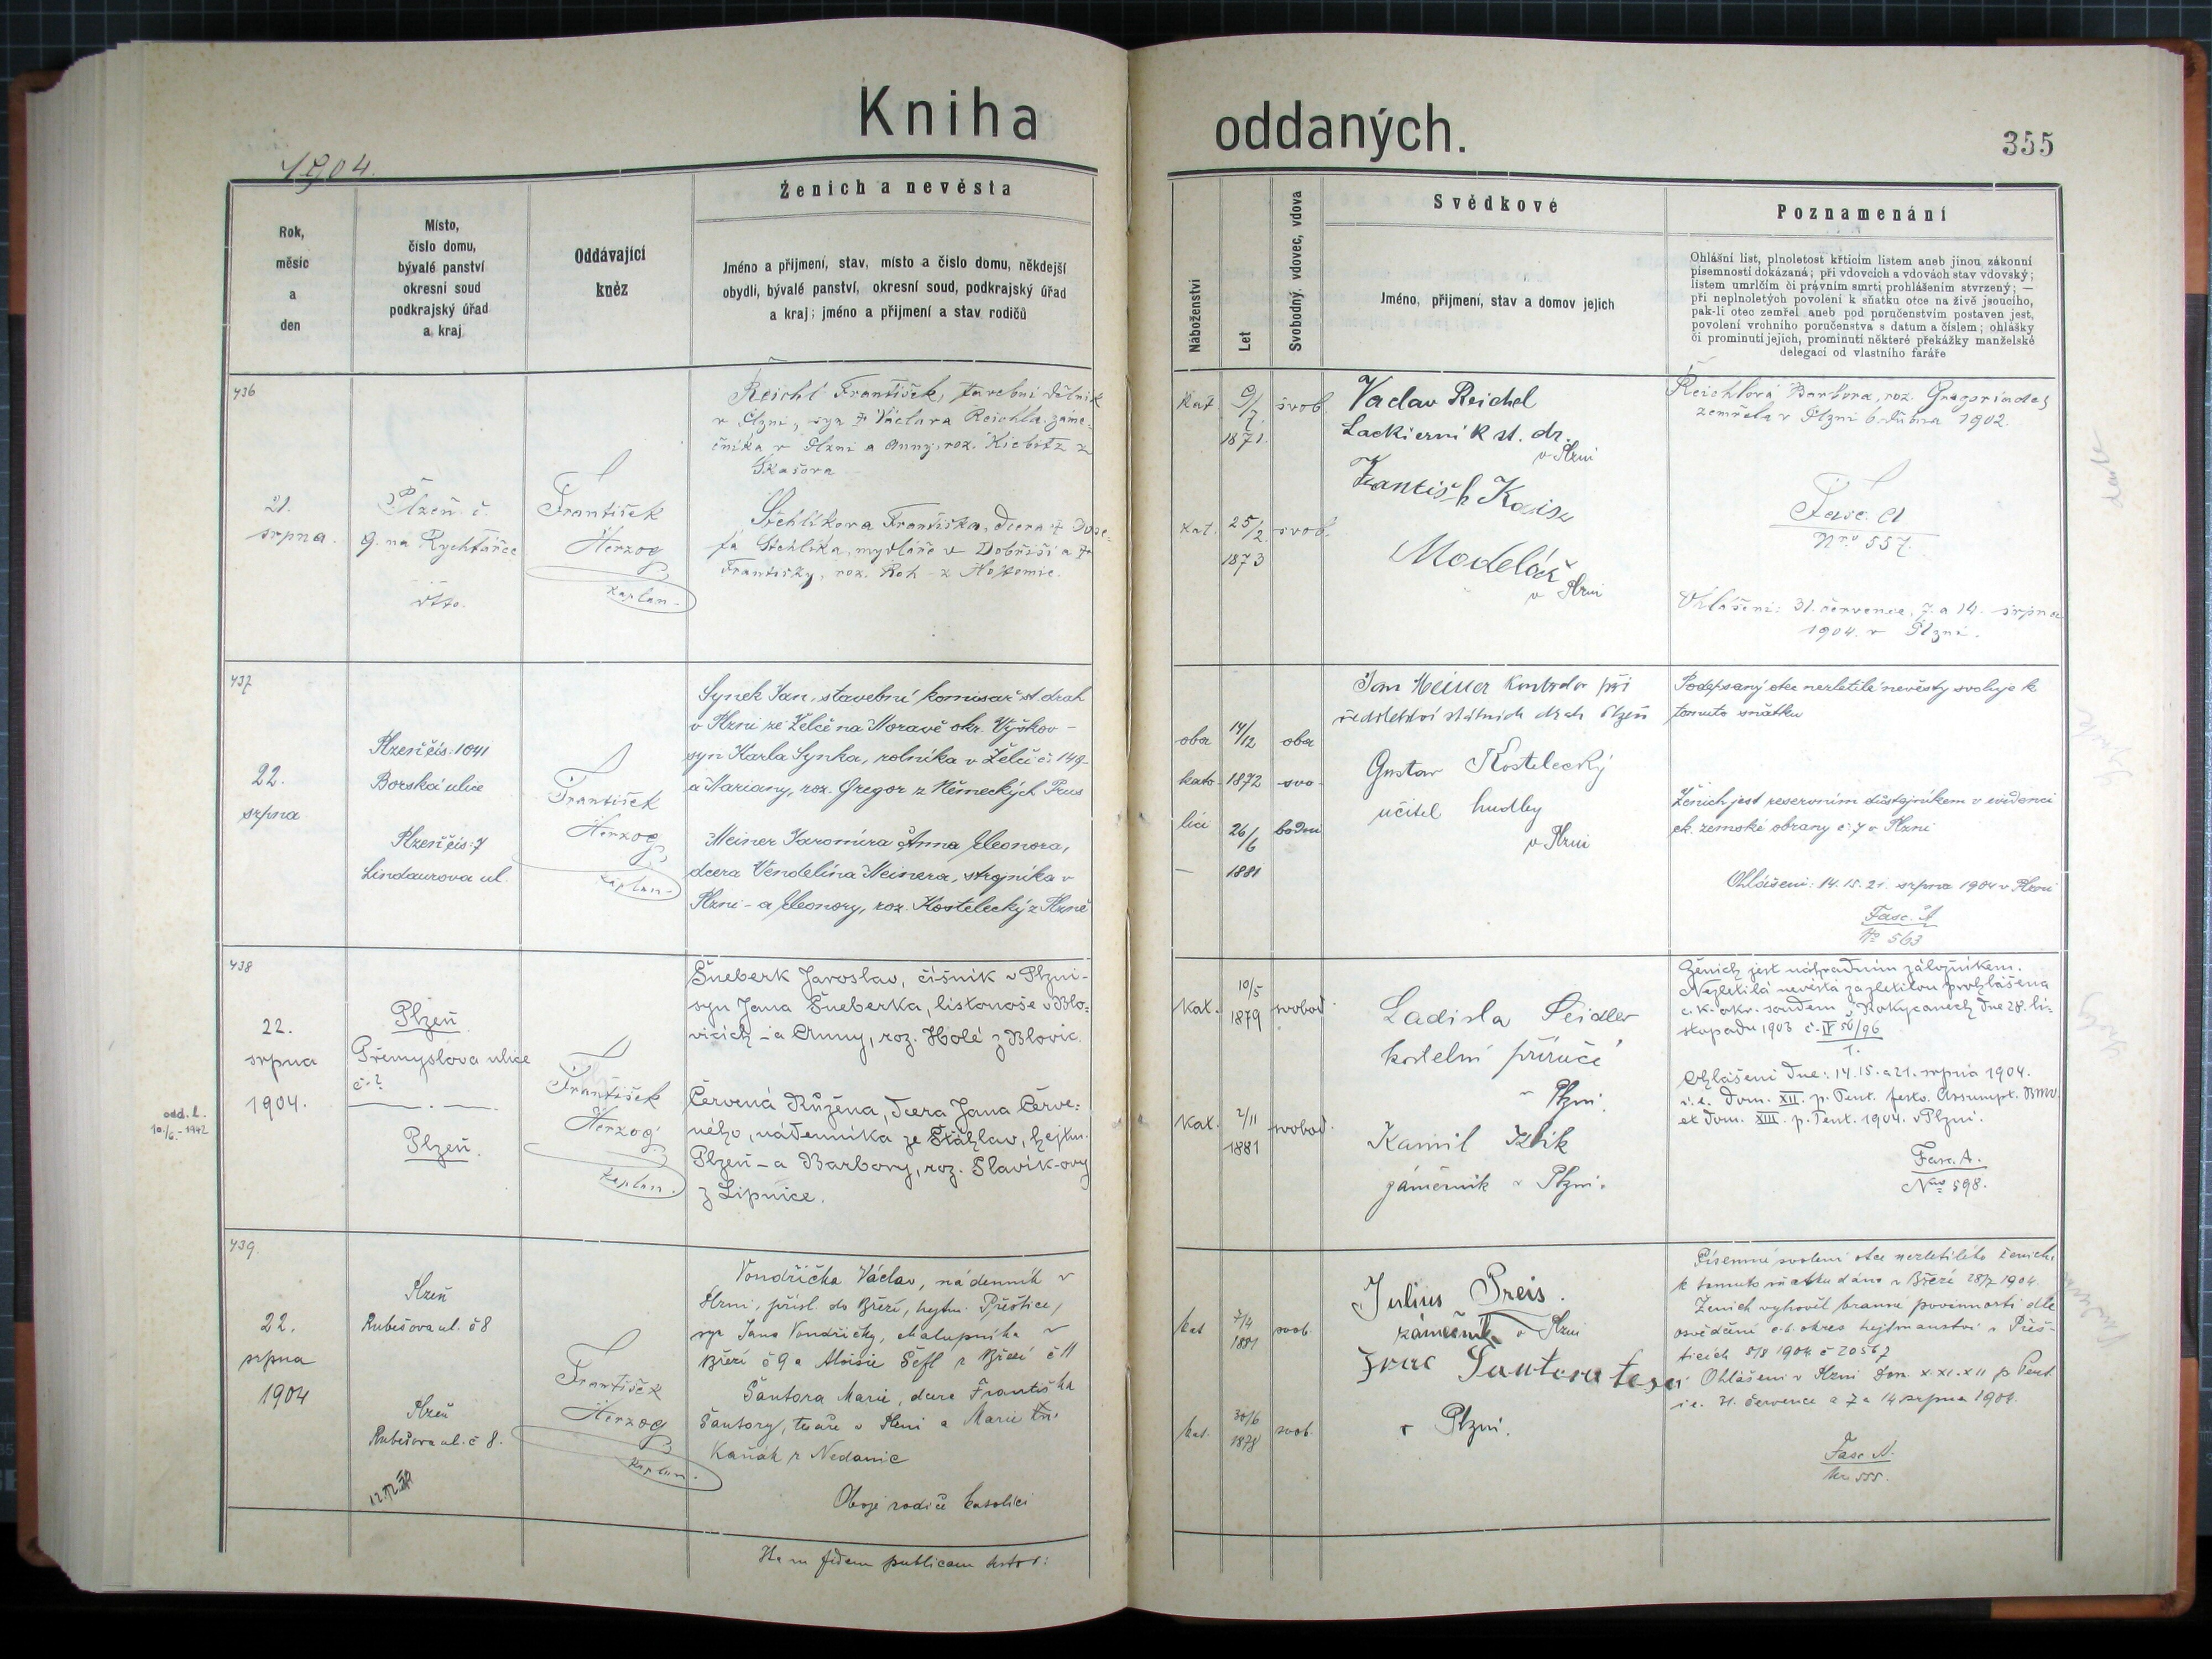 Kniha
oddaných.
355
1904.
Rok,
měsíc
a
den
Místo,
číslo domu,
bývalé panství
okresní soud
podkrajský úřad
a kraj
Oddávající
kněz
Ženich a nevěsta
Jméno a přijmení, stav, místo a číslo domu, někdejší
obydlí, bývalé panství, okresní soud, podkrajský úřad
a kraj; jméno a přijmení a stav rodičů
Náboženství
Let
Svobodný, vdovec, vdova
Svědkové
Jméno, přijmení, stav a domov jejich
Poznamenání
Ohlášní list, plnoletost křticím listem aneb jinou zákonní
písemností dokázaná; při vdovcích a vdovách stav vdovský;
listem umrlčím či právním smrti prohlášením stvrzený; —
při neplnoletých povolení k sňatku otce na živě jsoucího,
pak-li otec zemřel aneb pod poručenstvím postaven jest,
povolení vrchního poručenstva s datum a číslem; ohlášky
či prominutí jejich, prominutí některé překážky manželské
delegací od vlastního faráře
436
21.
srpna.
Plzeň č.
9. na Rychtářce
dtto.
František
Herzog
kaplan.
Reichl František, stavební dělník
v Plzni, syn † Václava Reichla, záme-
čníka v Plzni a Anny, roz. Kiebitz z
Skašova
Stehlíkova Františka, dcera † Jose-
fa Stehlíka, mydláře v Dobříši a †
Františky, roz. Roh - z Hostomic.
kat
9/
7.
1871.
svob.
kat.
25/2
1873
svob.
Vaclav Reichel
Lackierník st. dr.
v Plzni
Modelář
v Plzni
Reichlová Barbora, roz.
zemřela v Plzni 6. dubna 1902.
Fasc. A
Nro 557.
Ohlášeni: 31. července, 7. a 14. srpna
1904. v Plzni.
437
22.
srpna
Plzeň čís: 1041
Borská ulice
Plzeň čís: 7
Lindaurova ul.
František
Herzog
kaplan
Synek Jan, stavební komisař st. drah
v Plzni ze Želče na Moravě okr. Vyškov -
syn Karla Synka, rolníka v Želči č. 149-
a Mariany, roz. Gregor z Německých Prus
Meiner Jaromíra Anna Eleonora,
dcera Vendelína Meinera, strojníka v
Plzni - a Eleonory, roz. Kostelecký z Plzně
oba
kato-
líci
—
14/12
1872
26/6
1881
oba
svo-
bodni
Jan Meiner Kontrolor při
ředitelství státních drah Plzeň
Gustav Kostelecký
učitel hudby
v Plzni
Podepsaný otec nezletilé nevěsty svoluje k
tomuto sňatku
Ženich jest reservním důstojníkem v evidenci
ck. zemské obrany č. 7 v Plzni
Ohlášeni: 14. 15. 21. srpna 1904 v Plzni
Fasc. A
No 563
438
22.
srpna
1904.
odd. l.
10./6.-1942
Plzeň
Přemyslova ulice
č. 2
Plzeň.
František
Herzog
kaplan.
Šneberk Jaroslav, číšník v Plzni -
syn Jana Šneberka, listonoše v Blo-
vicích - a Anny, roz. Holé z Blovic.
Červená Růžena, dcera Jana Červe-
ného, nádenníka ze Štáhlav, hejtm.
Plzeň - a Barbory, roz. Slavík-ovy
z Lipnice.
kat.
10/5
1879
svobod.
kat.
2/11
1881
svobod.
Ladisla Seidler
kostelní
v Plzni.
Kamil
zámečník v Plzni.
Ženich jest náhradním záložníkem.
Nezletilá nevěsta za zletilou prohlášena
c. k. okr. soudem v Rokycanech dne 28. li-
stopadu 1903 č. IV 56/96
1.
Ohlášeni dne: 14. 15. a 21. srpna 1904.
i. e. Dom. XII. p. Pent. festo. Assumpt. BMV.
et Dom. XIII. p. Pent. 1904. v Plzni.
Fasc. A.
Nro 598.
439.
22.
srpna
1904
Plzeň
Rubešova ul. č 8
Plzeň
Rubešova ul. č 8.
František
Herzog
kaplan.
Vondřička Václav, nádenník v
Plzni, přísl. do Březí, hejtm. Přeštice,
syn Jana Vondřičky, chalupníka v
Březí č 9 a Aloisie Šefl z Březí č 11
Šantora Marie, dcera Františka
Šantory, tesaře v Plzni a Marie
Kaňák z Nedanic
Oboji rodiče katolíci
kat
1881
svob.
kat.
30/6
1878
svob.
Julius Preis.
zámečník v Plzni
Šantora tesař
v Plzni.
Písemné svolení otce nezletilého ženicha
k tomuto sňatku dáno v Březí 28/7 1904.
Ženich vyhověl branné povinnosti dle
osvědčení c. k. okres hejtmanství v Přeš-
ticích 8/8 1904 č 20567
Ohlášeni v Plzni Dom. X. XI. XII p Pent.
i. e. 31. července a 7 a 14 srpna 1904.
Fasc A.
Nro 555.
fidem publicam